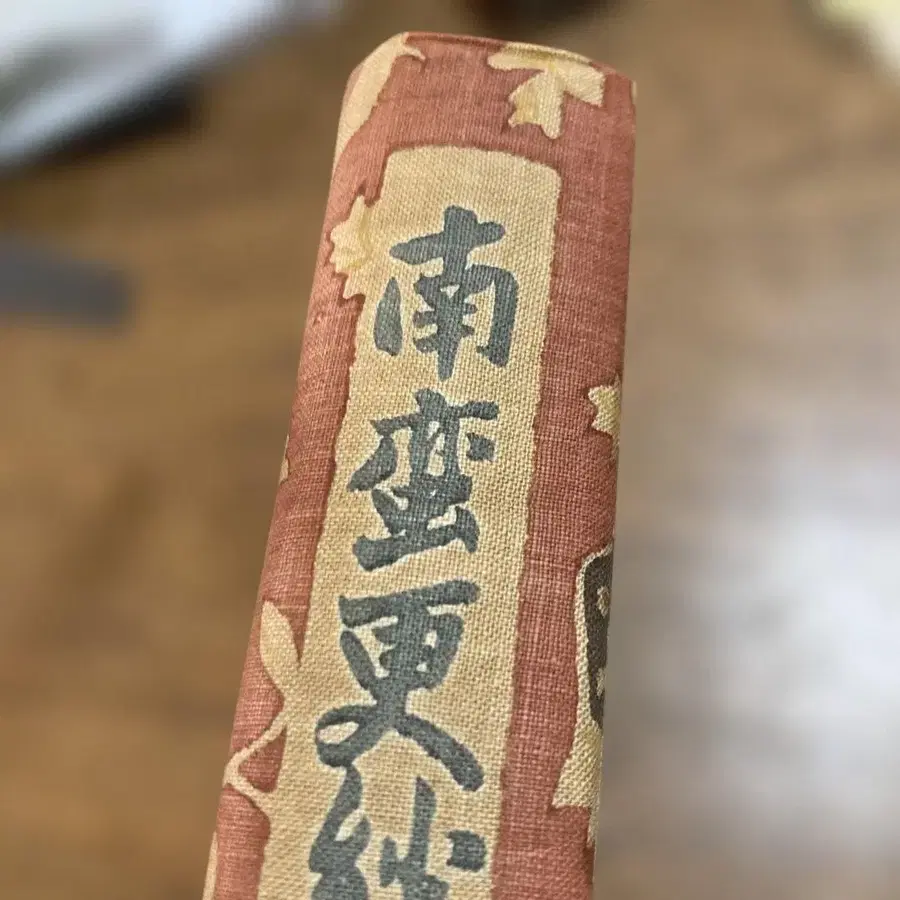 南蛮更紗